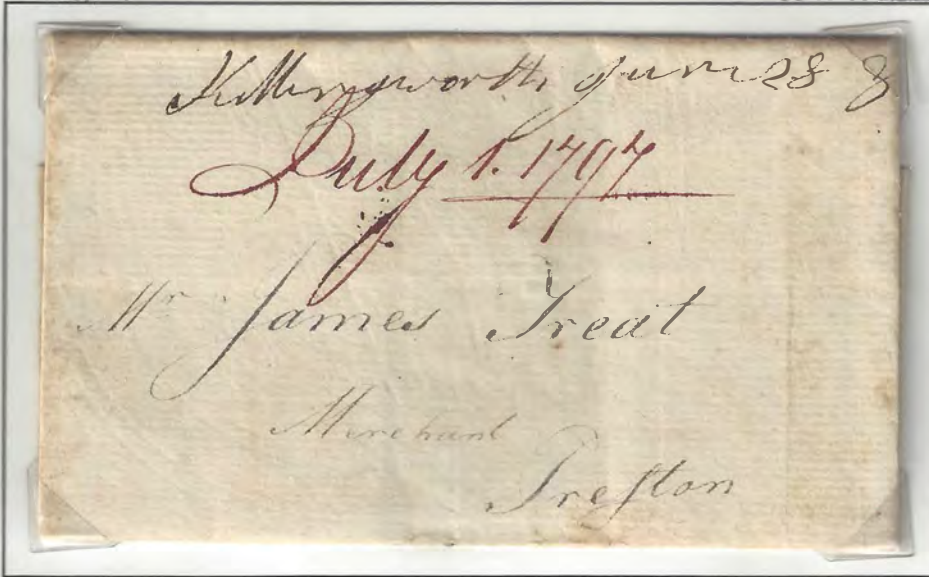 Killingworth June 28 8
July 1. 1797
Mr James Treat
Merchant
Preſton